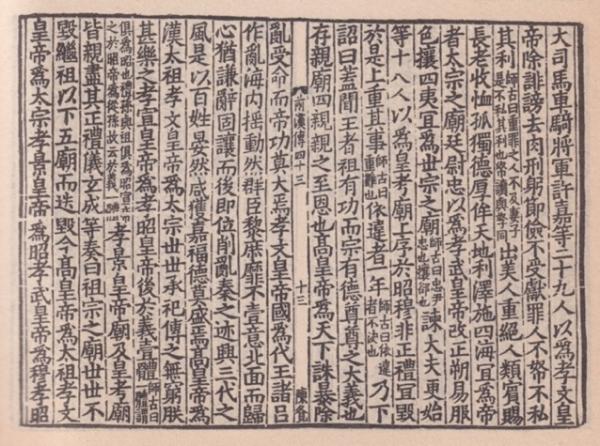 大司馬車騎將軍許嘉等二十九人以爲孝文皇
帝除誹謗去肉刑躬節儉不受獻罪人不帑不私
其利師古曰重罪之人不及妻子是不私其利也帑讀與孥同出美人重絕人類賓賜
長老收恤孤獨德厚侔天地利澤施四海宜爲帝
者太宗之廟廷尉忠以爲孝武皇帝改正朔易服
色攘四夷宜爲世宗之廟師古曰忠尹忠也攘卻也諫大夫更始
等十八人以爲皇考廟上序於昭穆非正禮宜毀
於是上重其事師古曰重難也依違者一年師古曰依違者不決也乃下
詔曰蓋聞王者祖有功而宗有德尊尊之大義也
存親廟四親親之至恩也高皇帝爲天下誅暴除
前漢傳四十三 十三 陳
亂受命而帝功莫大焉孝文皇帝國爲代王諸呂
作亂海內搖動然群臣黎庶靡不壹意北面而歸
心猶謙辭固讓而後即位削亂秦之迹興三代之
風是以百姓晏然咸獲嘉福德莫盛焉高皇帝爲
漢太祖孝文皇帝爲太宗世世承祀傳之無窮朕
甚樂之孝宣皇帝爲孝昭皇帝後於義壹體師古曰一體謂
俱爲昭也禮孫與祖俱爲昭宣帝之於昭帝爲從孫故云於義一體孝景皇帝廟及皇考廟
皆親盡其正禮儀玄成等奏曰祖宗之廟世世不
毀繼祖以下五廟而迭毀今高皇帝爲太祖孝文
皇帝爲太宗孝景皇帝爲昭孝武皇帝爲穆孝昭